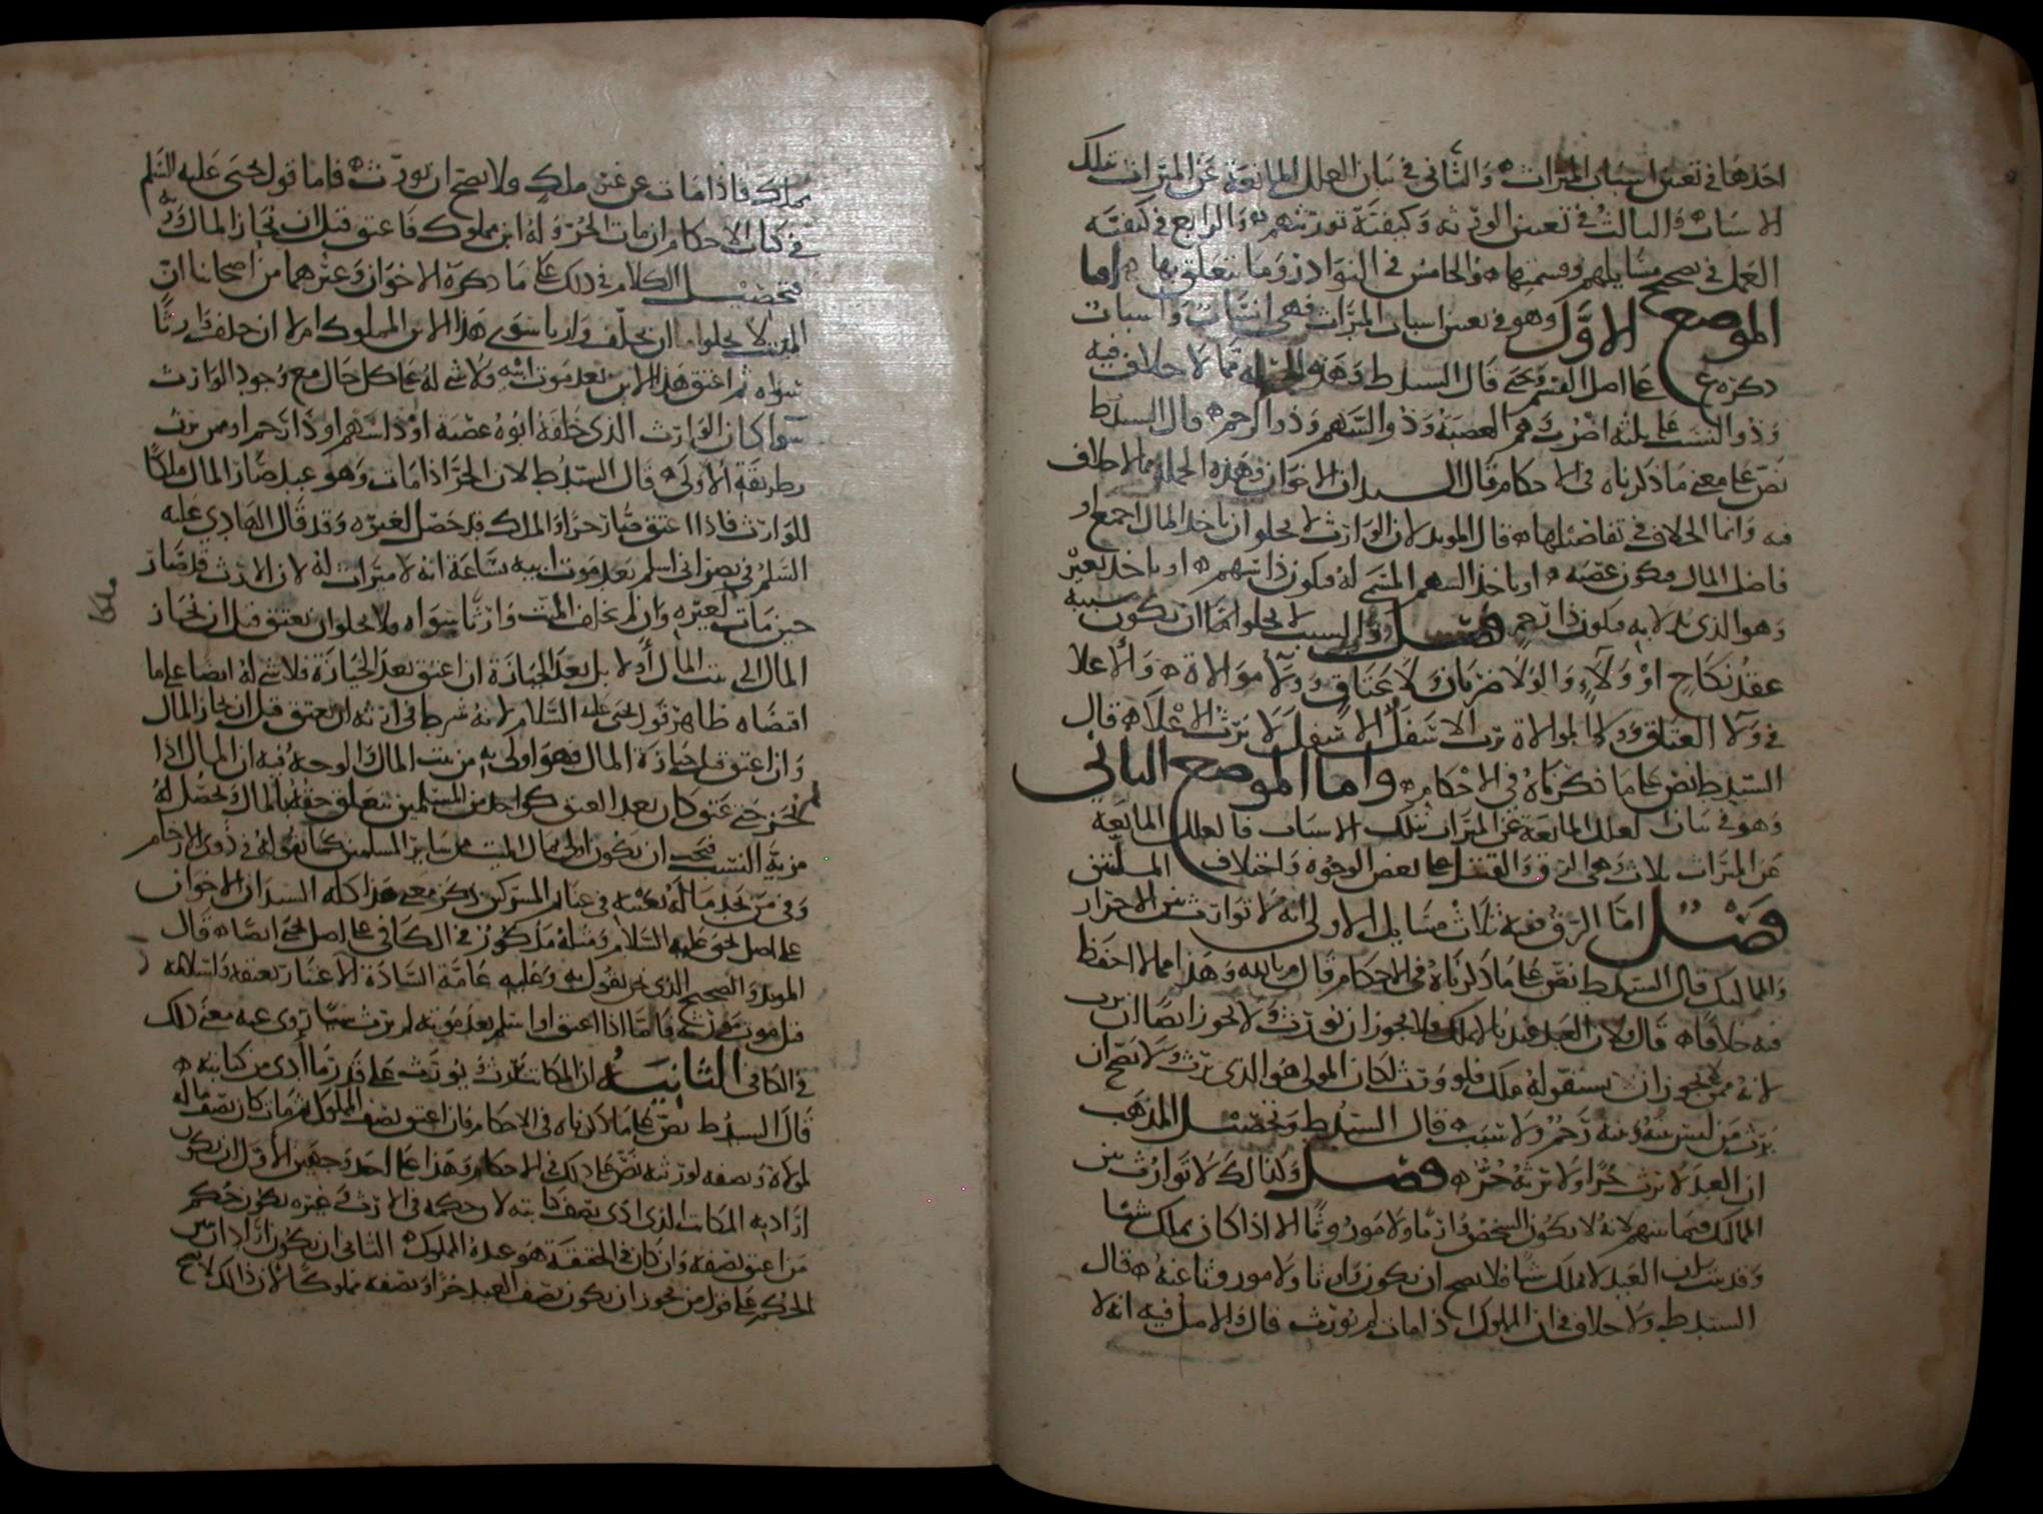 احدها في تعيين اسباب الميراث والثاني في بيان العلل المانعة عن الميراث بتلك
الاسباب والثالث في تعيين الورثة وكيفية توريثهم والرابع في كيفية
العمل في تصحيح مسايلهم وقسمتها والخامس في النوادر وما يتعلق بها اما
الموضع الاول وهو في تعيين اسباب الميراث فهي انساب واسباب
ذكره ع على اصل القسم ويحيى قال السيد ط وهذه الجملة مما لا خلاف فيه
وذو النسب على ثلثة اضرب وهم العصبة وذو السهم وذو الرحم قال السيد ط
نص على معنى ما ذكرناه في الاحكام قال السيدان الاخوان وهذه الجملة مما لا خلاف
فيه وانما الخلاف في تفاصيلها قال المويد لان الوارث لا يخلو ان ياخذ المال اجمع او
فاضل المال فيكون عصبة او ياخذ السهم المسمى له فيكون ذا سهم او ياخذ بغيره
وهو الذي يدلا به فيكون ذا رحم فصل وذو السبب لا يخلو اما ان يكون سببه
عقد نكاح او ولاء والولا ضربان ولاء عتاق وولاء موالاة والاعلا
في ولاء العتاق وولاء الموالاة يرث الاسفل الاسفل لا يرث الاعلا قال
السيد ط نص على ما ذكرناه في الاحكام واما الموضع الثاني
وهو في بيان العلل المانعة عن الميراث بتلك الاسباب فالعلل المانعة
عن الميراث ثلاث وهي الرق والقتل على بعض الوجوه واختلاف الملتين
فصل اما الرق ففيه ثلاث مسايل الاولى انه لا توارث بين الاحرار
والمماليك قال السيد ط نص على ما ذكرناه في الاحكام قال م بالله وهذا مما لا احفظ
فيه خلافا قال ولان العبد عندنا لا يملك ولا يجوز ان يورث ولا يجوز ايضا ان يرث
لانه ممن لا يجوز ان يستقر له ملك فلو ورث لكان المولى هو الذي يرث ولا يصح ان
يرث من ليس بينه وبينه رحم ولا سبب قال السيد ط وتحصيل المذهب
ان العبد لا يرث حرا ولا يرثه حر فصل وكذالك لا توارث بين
المماليك فيما بينهم لانه لا يكون الشخص وارثا ولا موروثا الا اذا كان يملك شيئا
وقد بينا ان العبد لا يملك شيئا فلا يصح ان يكون وارثا ولا موروثا عنه قال
السيد ط ولا خلاف في ان المملوك اذا مات لم يورث قال والاصل فيه انه لا
يملك فاذا مات مات عن غير ملك ولا يصح ان يورث فاما قول يحيى عليه السلم
في كتاب الاحكام ان مات الحر وله ابن مملوك فاعتق قبل ان يحاز المال ورثه
فتحصيل الكلام في ذلك على ما ذكره الاخوان وغيرهما من اصحابنا ان
الميت لا يخلو اما ان يخلف وارثا سوى هذا الابن المملوك ام لا ان خلف وارثا
سواه ثم اعتق هذا الابن بعد موت ابيه فلا شي له على كل حال مع وجود الوارث
سوا كان الوارث الذي خلفه ابوه عصبة او ذا سهم او ذا رحم او ممن يرث
وطريقة الاولى قال السيد ط لان الحر اذا مات وهو عبد صار المال ملكا
للوارث فاذا اعتق صار حرا والملك قد حصل لغيره وقد قال الهادي عليه
السلم في نصراني اسلم بعد موت ابيه بساعة انه لا ميراث له لان الارث قد صار
حين مات لغيره وان لم يخلف الميت وارثا سواه فلا يخلو ان يعتق قبل ان يحاز
المال الى بيت المال اولا بل بعد الحيازة ان اعتق بعد الحيازة فلا شي له ايضا على ما
اقتضاه ظاهر قول يحيى عليه السلام لانه شرط في ارثه ان يعتق قبل ان يحاز المال
وان اعتق قبل حيازة المال فهو اولى به من بيت المال والوجه فيه ان المال اذا
لم يحز حتى عتق كان بعد العتق كواحد من المسلمين تتعلق حقه بالمال وتحصل له
مزية النسب فيجب ان يكون اولى بمال الميت من ساير المسلمين كما نقوله في ذوي الارحام
وفي من يجد ماله بعينه في غنايم المشركين ذكر معنى هذا كله السيدان الاخوان
على اصل يحيى عليه السلام ومثله مذكور في الكافي على اصل يحيى ايضا قال
المويد والصحيح الذي نحن نقول به وعليه عامة السادة الاعتبار بعتقه واسلامه
قبل موت مورثه فاما اذا اعتق او اسلم بعد موته لم يرث شيئا روى عنه معنى ذلك
في الكافي الثانية ان المكاتب يرث ويورث على قدر ما ادى من كتابته
قال السيد ط نص على ما ذكرناه في الاحكام فان اعتق نصف المملوك ثم مات كان نصف ماله
لمولاه ونصفه لورثته نص على ذلك في الاحكام وهذا على احد وجهين الاول ان يكون
اراد به المكاتب الذي ادى نصف كتابته لان حكمه في الارث وغيره يكون حكم
من اعتق نصفه وان كان في الحقيقة هو عبدة المملوك الثاني ان يكون اراد ان يبين
الحكم على قول من يجوز ان يكون نصف العبد حرا ونصفه مملوكا لان ذالك لا يصح
ملكا